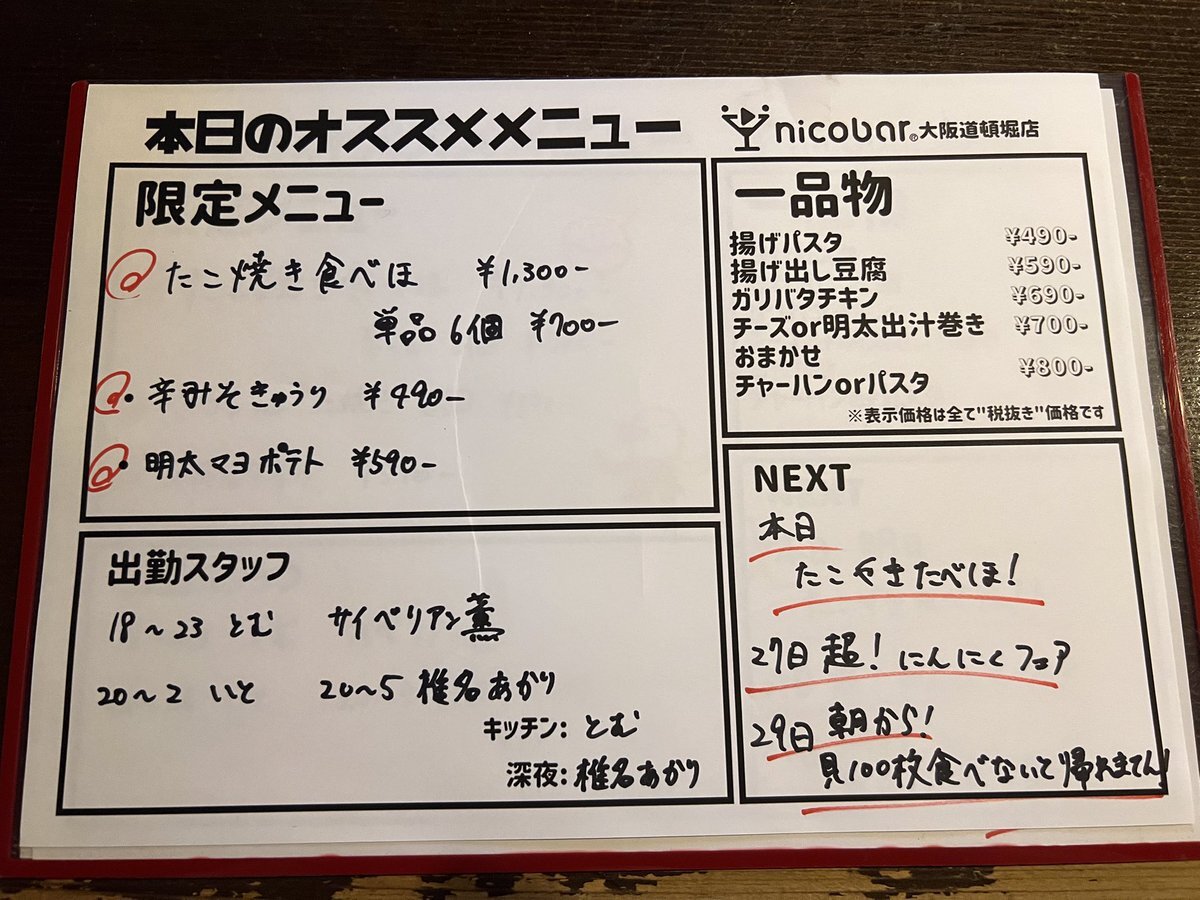 本日のオススメメニュー
nicobar® 大阪道頓堀店
限定メニュー
たこ焼き食べほ ¥1,300-
単品6個 ¥700-
・辛みそきゅうり ¥490-
・明太マヨポテト ¥590-
一品物
揚げパスタ ¥490-
揚げ出し豆腐 ¥590-
ガリバタチキン ¥690-
チーズor明太出汁巻き ¥700-
おまかせ
チャーハンorパスタ ¥800-
※表示価格は全て"税抜き"価格です
出勤スタッフ
18~23 とむ サイベリアン薫
20~2 いと 20~5 椎名あかり
キッチン: とむ
深夜: 椎名あかり
NEXT
本日
たこやきたべほ!
27日 超!にんにくフェア
29日 朝から!
貝100枚食べないと帰れません!